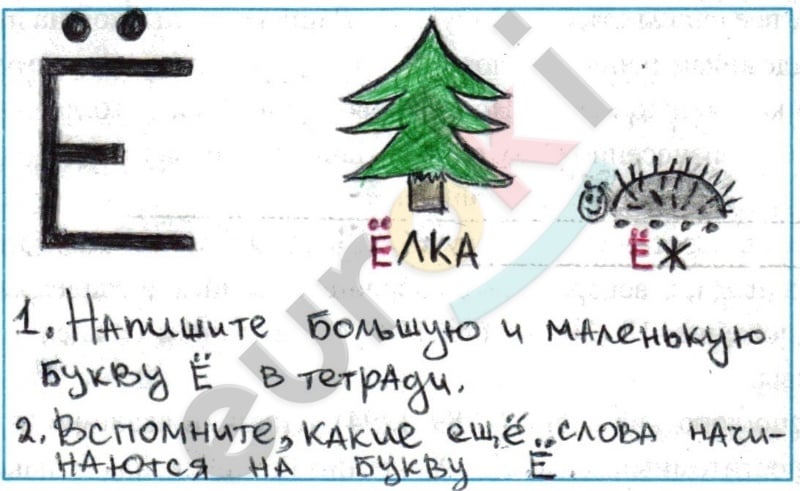 Ё
ЁЛКА
ЁЖ
1. Напишите большую и маленькую
букву Ё в тетради.
2. Вспомните, какие ещё слова начи-
наются на букву Ё.
euroki